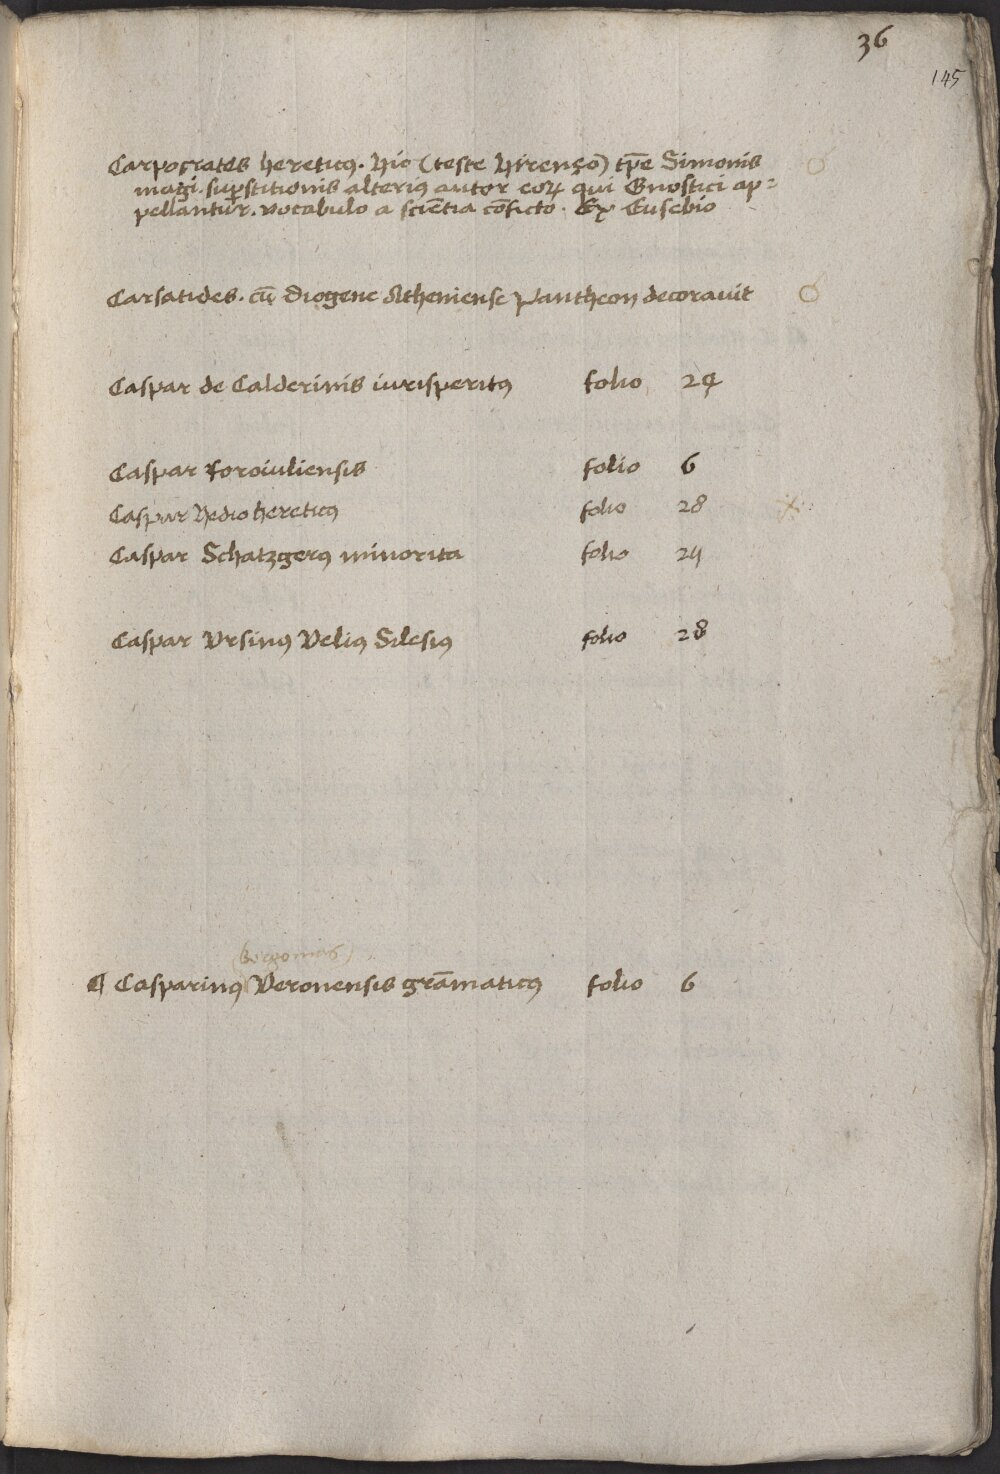 36
145
Carpocrates hereticꝰ. Hic (teste Hirenęo) tp̄e Simonis
magi. suꝑstitionis alteriꝰ autor eoꝝ qui Gnostici ap=
pellantur. vocabulo a sciētia cōficto. Ex Eusebio
Carsatides. cū Diogene Atheniense Pantheon decorauit
Caspar de Calderinis iurisperitꝰ folio 24
Caspar foroiuliensis folio 6
Caspar Hedio hereticꝰ folio 28
Caspar Schatzgerꝰ minorita folio 24
Caspar Vrsinꝰ Veliꝰ Silesiꝰ folio 28
(Bergomas)
¶ Casparinꝰ Veronensis grāmaticꝰ folio 6